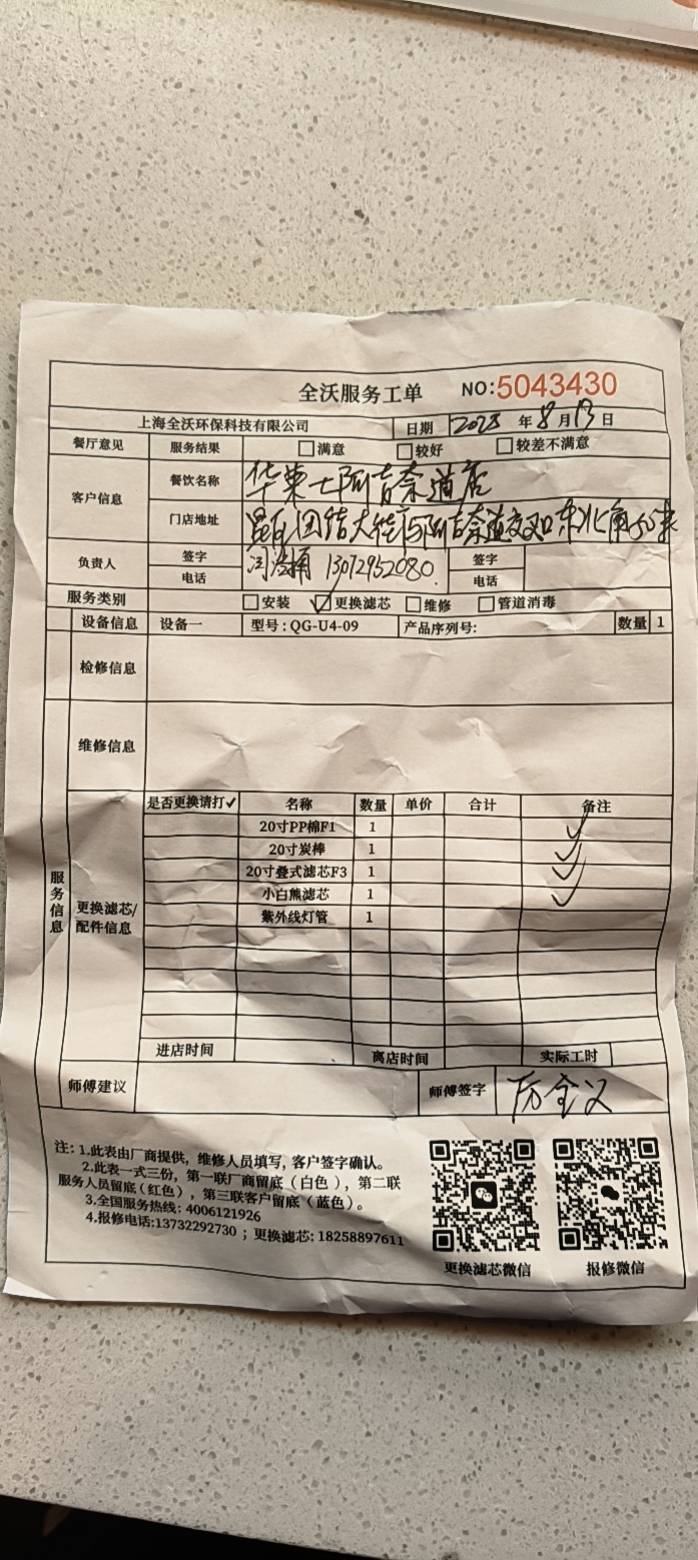 全沃服务工单 NO:5043430
上海全沃环保科技有限公司 日期 2025 年 8 月 13 日
餐厅意见 服务结果 满意 较好 较差不满意
客户信息 餐饮名称 华莱士阿吉奈道店
门店地址 昆区团结大街与阿吉奈道交叉口东北角50米
负责人 签字 签字
电话 13072952080 电话
服务类别 安装 ✓更换滤芯 维修 管道消毒
设备信息 设备一 型号:QG-U4-09 产品序列号: 数量 1
检修信息
维修信息
服务信息
更换滤芯/配件信息
是否更换请打✓ 名称 数量 单价 合计 备注
20寸PP棉F1 1 ✓
20寸炭棒 1 ✓
20寸叠式滤芯F3 1 ✓
小白熊滤芯 1 ✓
紫外线灯管 1
进店时间 离店时间 实际工时
师傅建议 师傅签字
注: 1.此表由厂商提供，维修人员填写, 客户签字确认。
2.此表一式三份，第一联厂商留底（白色），第二联
服务人员留底(红色)，第三联客户留底（蓝色）。
3.全国服务热线: 4006121926
4.报修电话:13732292730 ；更换滤芯: 18258897611
更换滤芯微信 报修微信